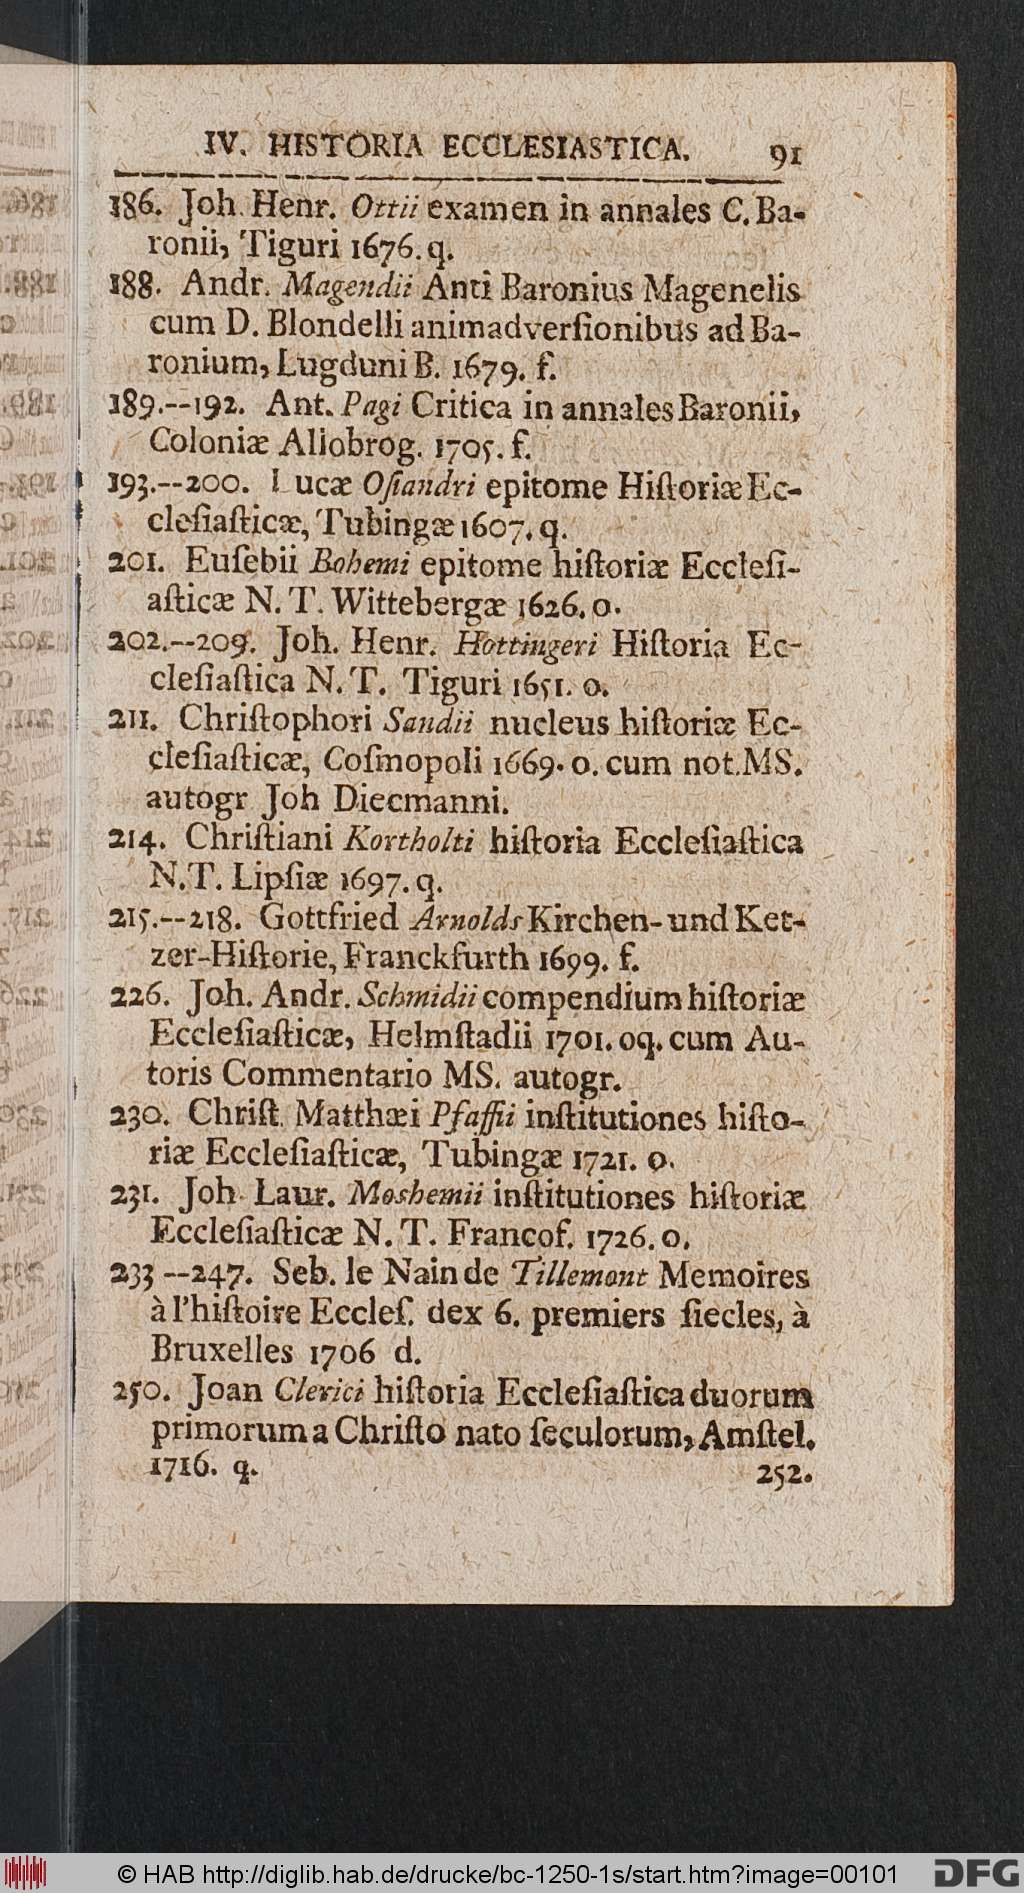 IV. HISTORIA ECCLESIASTICA. 91
186. Joh. Henr. Ottii examen in annales C. Ba-
ronii, Tiguri 1676. q.
188. Andr. Magendii Anti Baronius Magenelis
cum D. Blondelli animadverſionibus ad Ba-
ronium, Lugduni B. 1679. f.
189.--192. Ant. Pagi Critica in annales Baronii,
Coloniæ Allobrog. 1705. f.
193.--200. Lucæ Oſiandri epitome Hiſtoriæ Ec-
cleſiaſticæ, Tubingæ 1607. q.
201. Euſebii Bohemi epitome hiſtoriæ Eccleſi-
aſticæ N. T. Wittebergæ 1626. o.
202.--209. Joh. Henr. Hottingeri Hiſtoria Ec-
cleſiaſtica N. T. Tiguri 1651. o.
211. Chriſtophori Sandii nucleus hiſtoriæ Ec-
cleſiaſticæ, Coſmopoli 1669. o. cum not. MS.
autogr Joh Diecmanni.
214. Chriſtiani Kortholti hiſtoria Eccleſiaſtica
N. T. Lipſiæ 1697. q.
215.--218. Gottfried Arnolds Kirchen- und Ket-
zer-Hiſtorie, Franckfurth 1699. f.
226. Joh. Andr. Schmidii compendium hiſtoriæ
Eccleſiaſticæ, Helmſtadii 1701. oq. cum Au-
toris Commentario MS. autogr.
230. Chriſt. Matthæi Pfaffii inſtitutiones hiſto-
riæ Eccleſiaſticæ, Tubingæ 1721. o.
231. Joh. Laur. Moshemii inſtitutiones hiſtoriæ
Eccleſiaſticæ N. T. Francof. 1726. o.
233 --247. Seb. le Nain de Tillemont Memoires
à l'hiſtoire Eccleſ. dex 6. premiers ſiecles, à
Bruxelles 1706 d.
250. Joan Clerici hiſtoria Eccleſiaſtica duorum
primorum a Chriſto nato ſeculorum, Amſtel.
1716. q. 252.
© HAB http://diglib.hab.de/drucke/bc-1250-1s/start.htm?image=00101
DFG